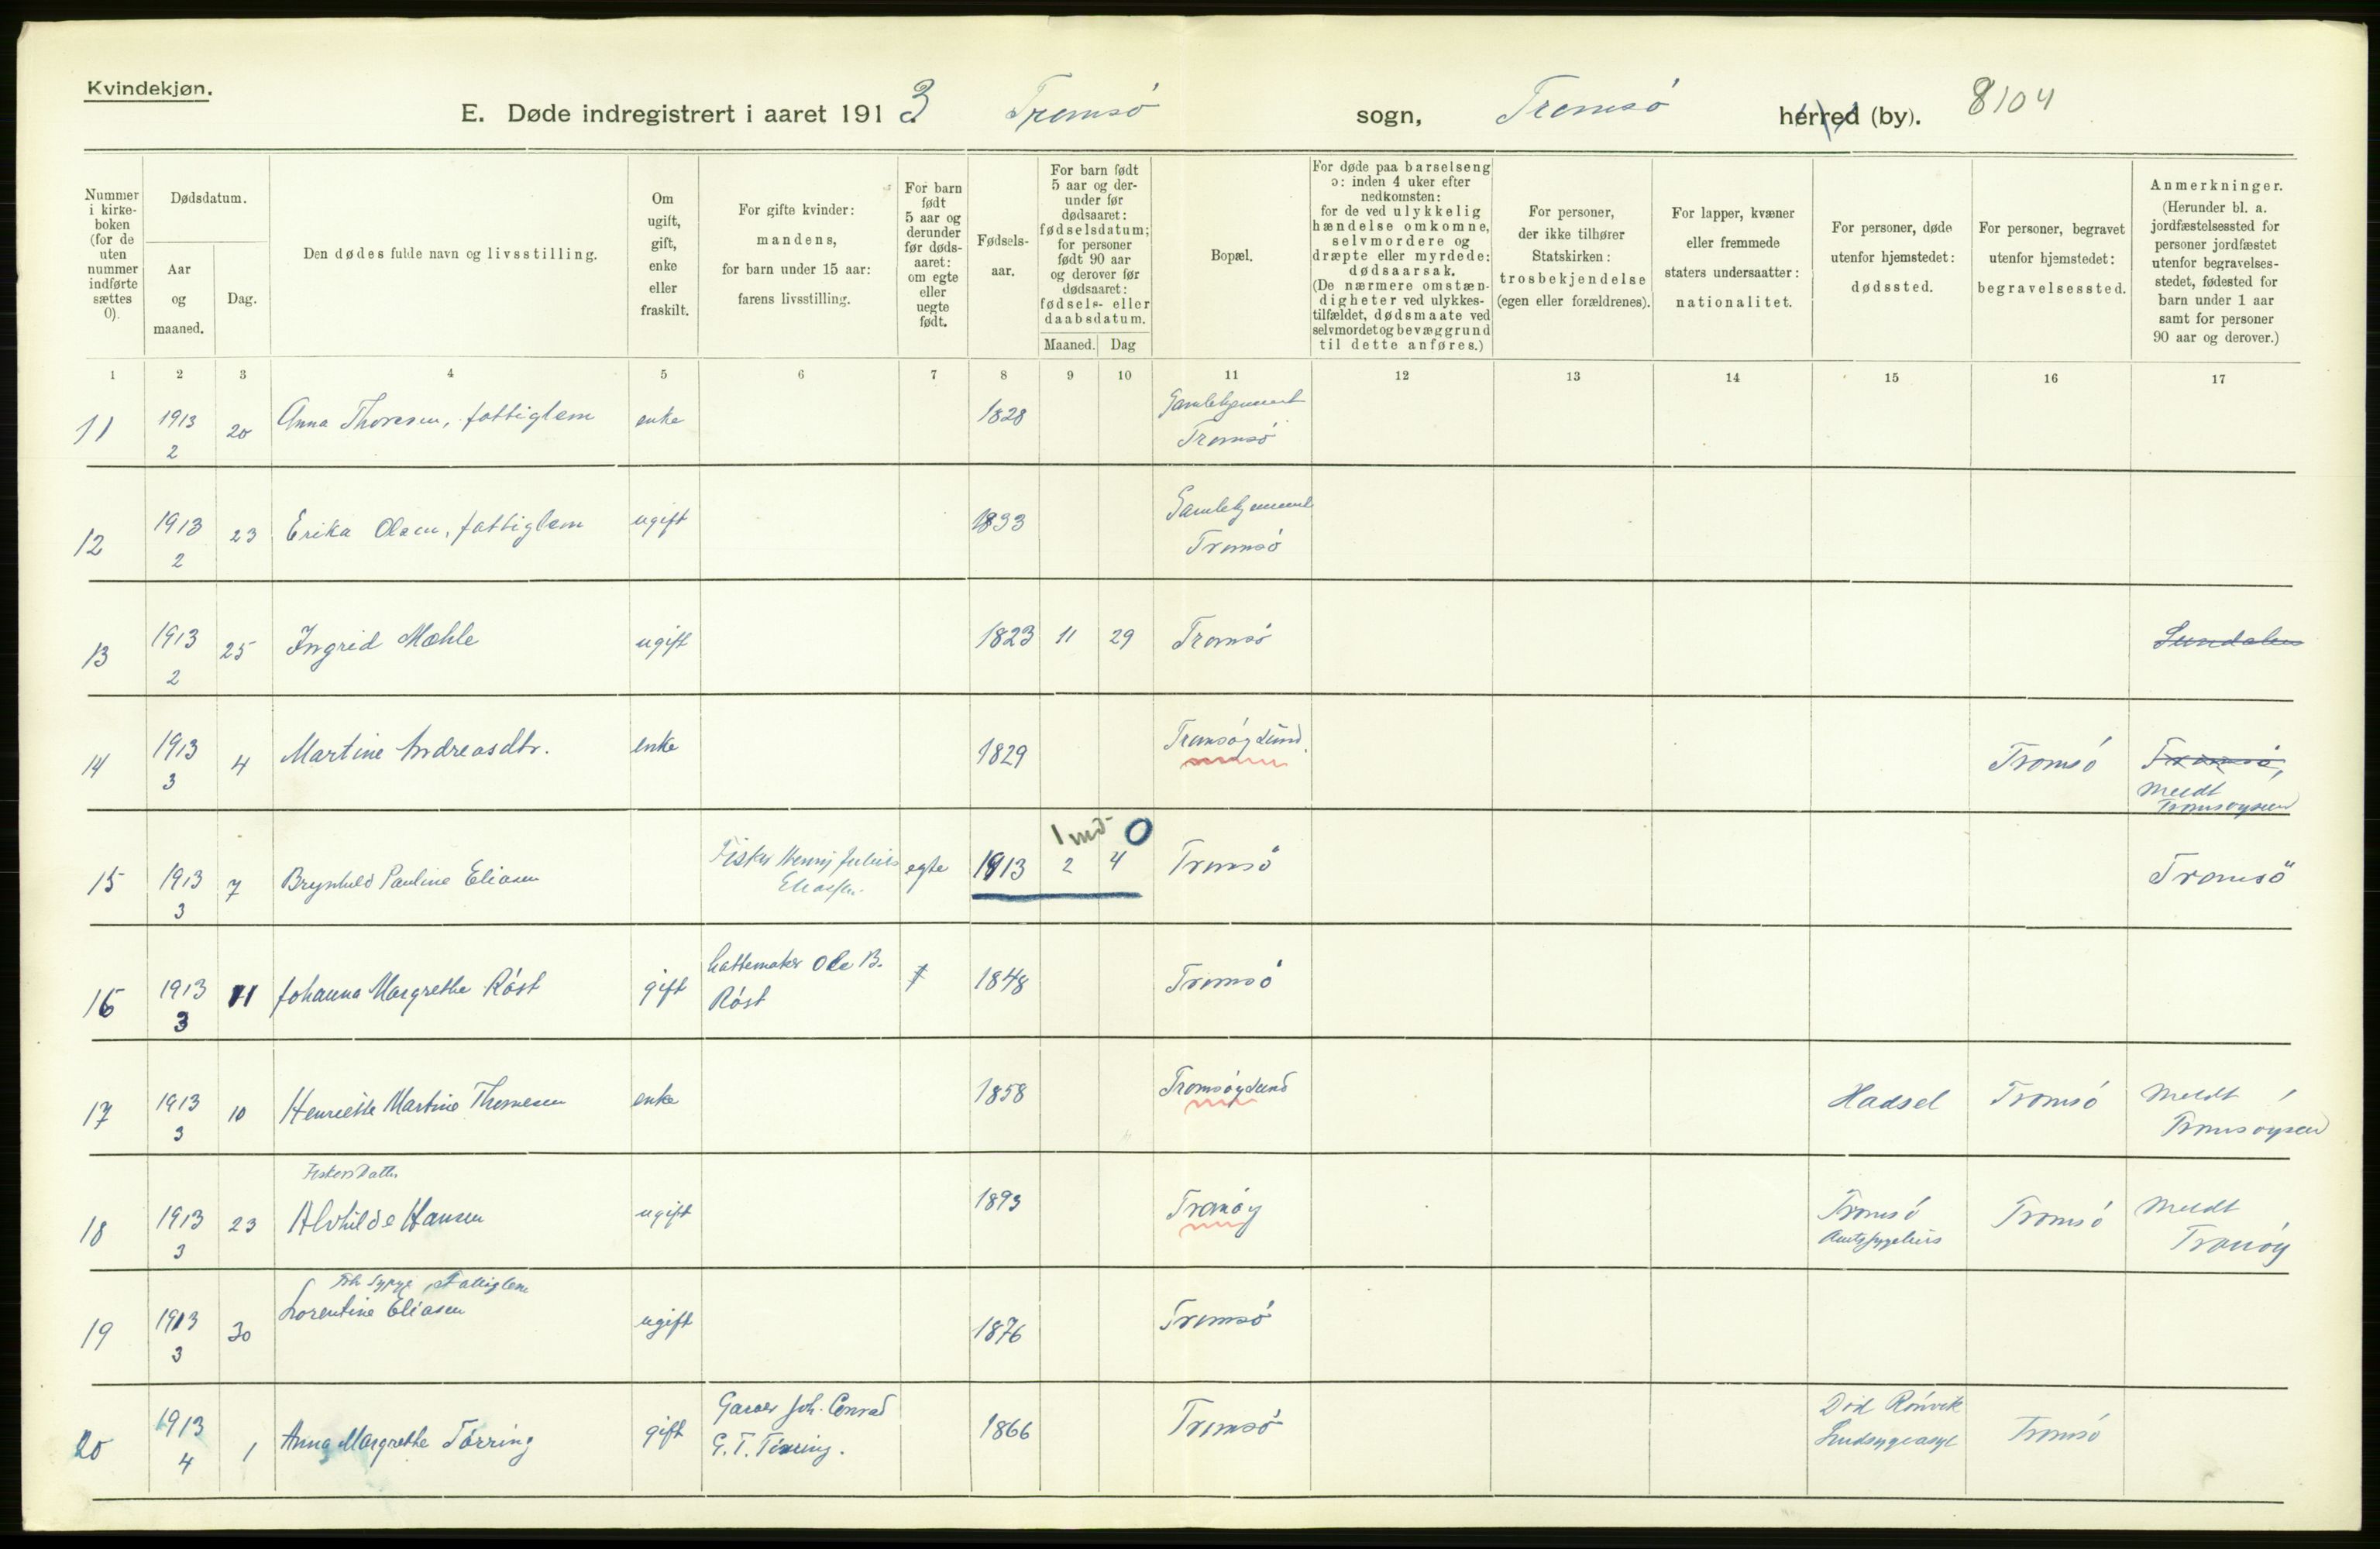 Kvindekjøn.
E. Døde indregistrert i aaret 1913. Tromsö sogn, Tromsö herred (by). 8104
Nummer i kirkeboken (for de uten nummer indførte sættes 0).
Dødsdatum.
Aar og maaned.
Dag.
Den dødes fulde navn og livsstilling.
Om ugift, gift, enke eller fraskilt.
For gifte kvinder: mandens, for barn under 15 aar: farens livsstilling.
For barn født 5 aar og derunder før dødsaaret: om egte eller uegte født.
Fødselsaar.
For barn født 5 aar og derunder før dødsaaret: fødselsdatum; for personer født 90 aar og derover før dødsaaret: fødsels- eller daabsdatum.
Maaned. Dag
Bopæl.
For døde paa barselseng ɔ: inden 4 uker efter nedkomsten: for de ved ulykkelig hændelse omkomne, selvmordere og dræpte eller myrdede: dødsaarsak. (De nærmere omstændigheter ved ulykkestilfældet, dødsmaate ved selvmordet og bevæggrund til dette anføres.)
For personer, der ikke tilhører Statskirken: trosbekjendelse (egen eller forældrenes).
For lapper, kvæner eller fremmede staters undersaatter: nationalitet.
For personer, døde utenfor hjemstedet: dødssted.
For personer, begravet utenfor hjemstedet: begravelsessted.
Anmerkninger. (Herunder bl. a. jordfæstelsessted for personer jordfæstet utenfor begravelsesstedet, fødested for barn under 1 aar samt for personer 90 aar og derover.)
1 2 3 4 5 6 7 8 9 10 11 12 13 14 15 16 17
11 1913 2 20 Anna Thoresen, fattiglem enke 1828 Gamlehjemmet Tromsö
12 1913 2 23 Erika Olsen, fattiglem ugift 1833 Gamlehjemmet Tromsö
13 1913 2 25 Ingrid Mæhle ugift 1823 11 29 Tromsö Sundalen
14 1913 3 4 Martine Andreasdtr. enke 1829 Tromsöysund. Tromsö Tromsö, Meldt Tromsøysund
1 md 0
15 1913 3 7 Brynhild Pauline Eliasen Fisker Henrij Julius Eliassen egte 1913 2 4 Tromsö Tromsö
16 1913 3 11 Johanna Margrethe Röst gift Hattemaker Ole B. Röst 1848 Tromsö
17 1913 3 10 Henriette Martine Thomesen enke 1858 Tromsöysund Hadsel Tromsö Meldt Tromsøysund
Fiskers Datter
18 1913 3 23 Alvhilde Hansen ugift 1893 Tranöy Tromsö Amtssygehus Tromsö Meldt Tranöy
Fattiglem
19 1913 3 30 Lorentine Eliasen ugift 1876 Tromsö
20 1913 4 1 Anna Margrethe Törring gift Garver Joh. Conrad G. T. Törring. 1866 Tromsö Död Rönvik Sindsygeasyl Tromsö